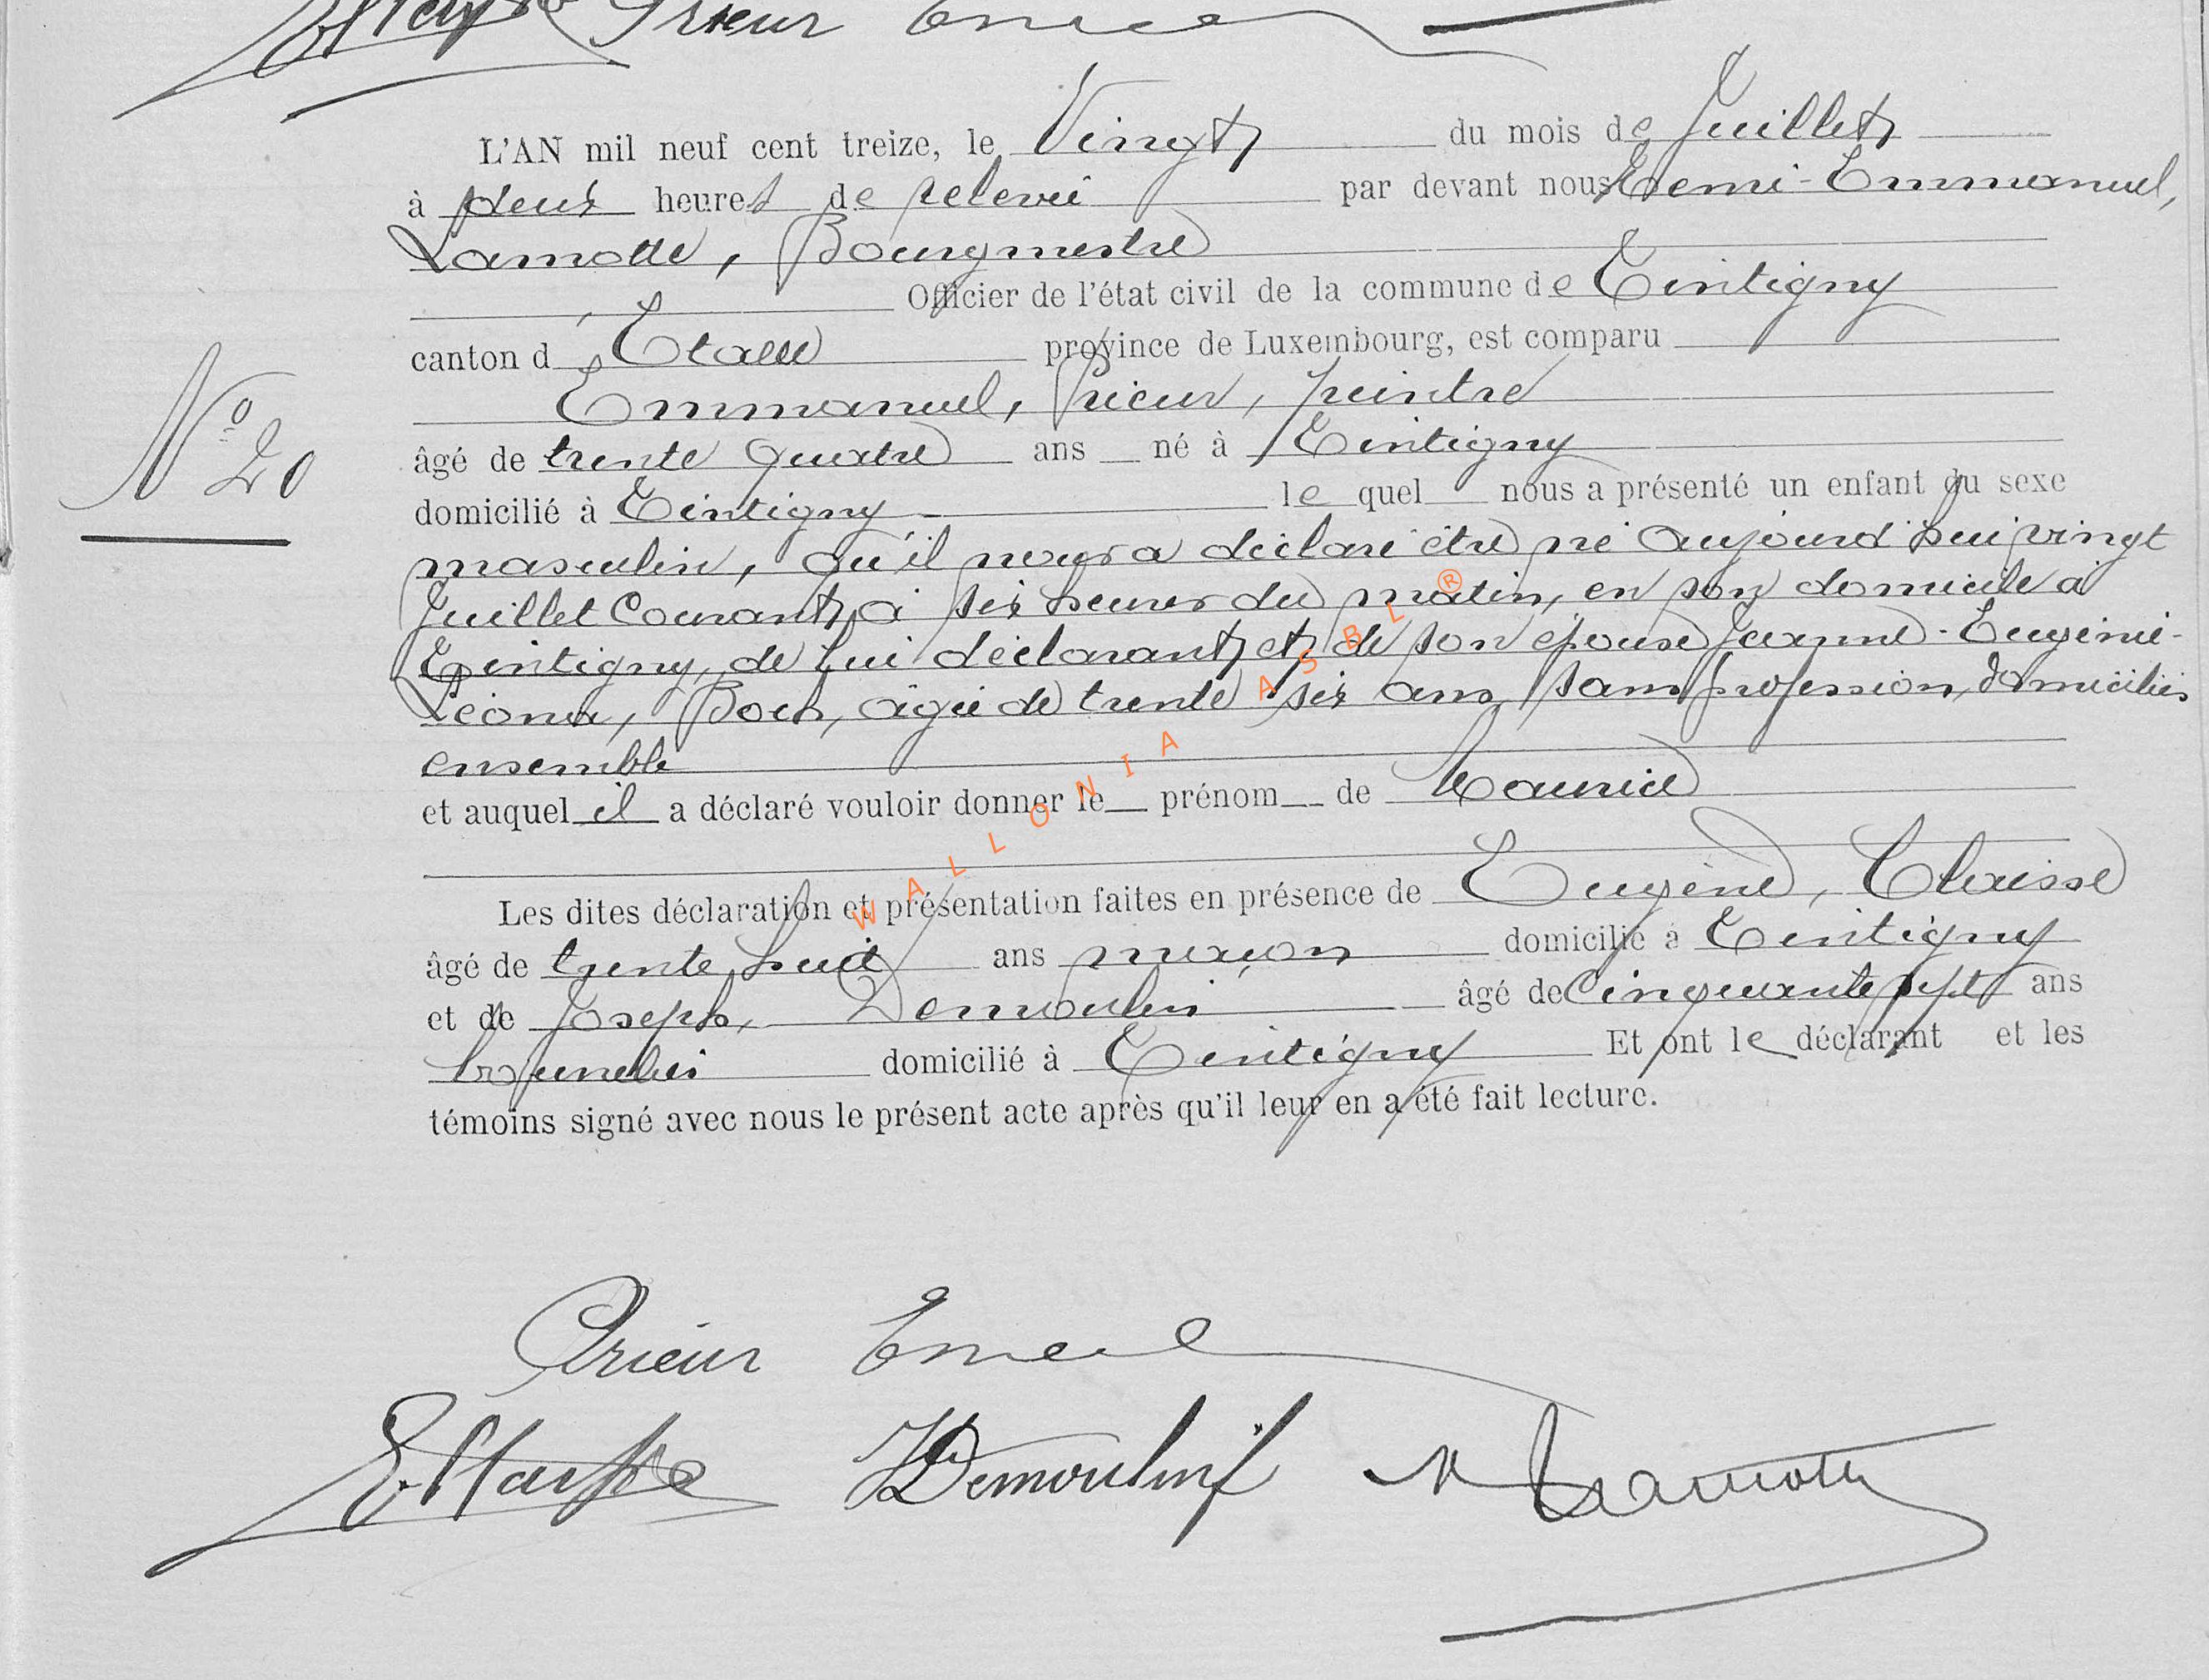 Prieur
L'AN mil neuf cent treize, le Vingt du mois de Juillet
à deux heures de relevée par devant nous Remi-Emmanuel,
Lamotte, Bourgmestre
Officier de l'état civil de la commune de Tintigny
canton d'Etalle province de Luxembourg, est comparu
Emmanuel, Prieur, peintre
âgé de trente quatre ans né à Tintigny
domicilié à Tintigny le quel nous a présenté un enfant du sexe
masculin, qu'il nous a déclaré être né aujourd'hui vingt
Juillet Courant, à six heures du matin, en son domicile à
Tintigny, de lui déclarant et de son épouse Jeanne-Eugénie-
Léona, Boch, âgée de trente six ans, sans profession, domiciliés
ensemble
et auquel il a déclaré vouloir donner le prénom de Maurice
Les dites déclaration et présentation faites en présence de Eugène, Claisse
âgé de trente huit ans domicilié à Tintigny
et de Joseph, Demoulin âgé de Cinquante sept ans
domicilié à Tintigny Et ont le déclarant et les
témoins signé avec nous le présent acte après qu'il leur en a été fait lecture.
N° 20
Prieur
E. Claisse JDemoulin Lamotte
WALLONIA ASBL ®